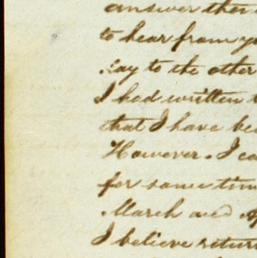 answer this
to hear from yo
say to the other
I had written
that I have be
However. I ca
for some tim
March and
I believe return